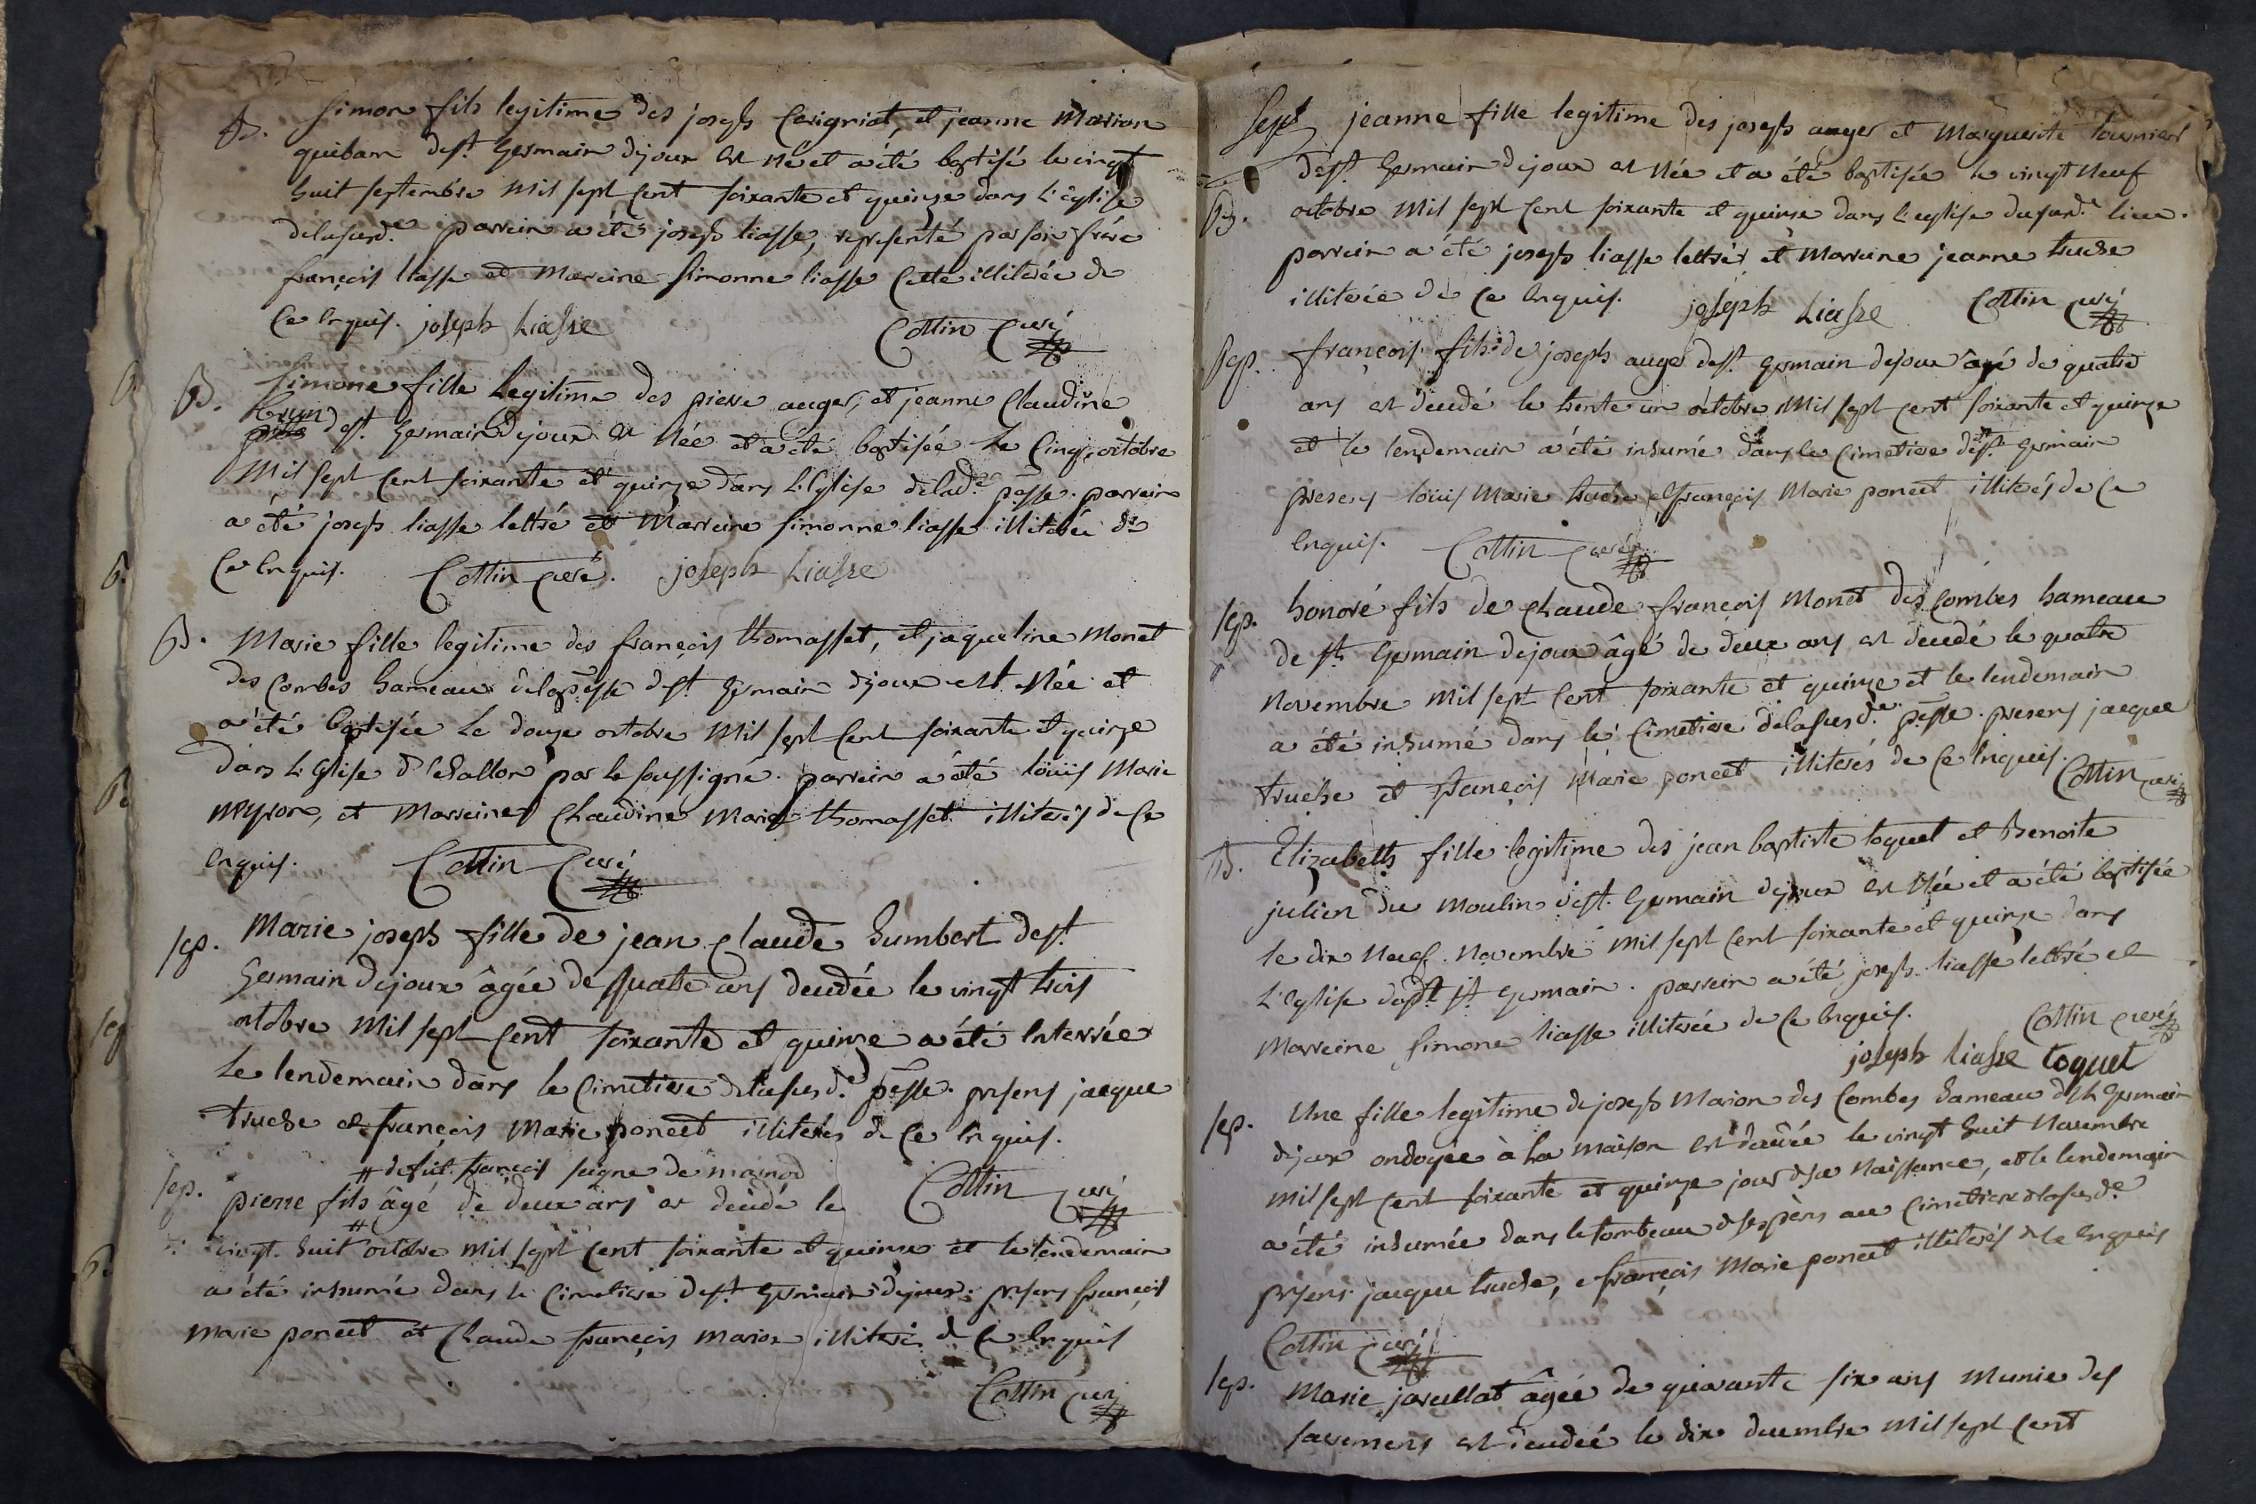 B. Simon fils legitime des joseph Cavigniat, et jeanne Marion
quiban dest. Germain dejoux est né et a été baptisé le vingt
huit septembre mil sept cent soixante et quinze dans l'église
delasusd.e parrein a été joseph liasse, representé par son frere
françois liasse et Marreine simonne liasse cette illiterée de
ce enquis. joseph Liasse Cottin curé
B. Simone fille legitime des pierre auger, et jeanne Claudine
dest. Germain dejoux est née et a été baptisée le cinq octobre
mil sept cent soixante et quinze dans l'eglise delad.e pesse. parrein
a été joseph liasse lettré et Marreine simonne liasse illiterée de
ce enquis. Cottin curé. joseph Liasse
B. Marie fille legitime des françois thomasset, et jaqueline Monet
des Combes hameau delapesse dest Germain dejoux est née et
a été baptisée le douze octobre mil sept cent soixante et quinze
dans l'Eglise d'echallon par le soussigné. parrein a été loüis Marie
neyron, et Marreine Claudine Marie thomasset illiterés de ce
enquis. Cottin Curé
sep. Marie joseph fille de jean claude humbert dest.
Germain dejoux âgée de quatre ans decedée le vingt trois
octobre mil sept cent soixante et quinze a été Enterrée
le lendemain dans le Cimetiere delasusd.e pesse. presens jacque
truche et françois Marie poncet illiterés de ce enquis.
# defut françois seigne de
sep. pierre fils # âgé de deux ans est decedé le Cottin curé
vingt huit octobre mil sept cent soixante et quinze et le lendemain
a été inhumé dans le Cimetiere dest. Germain dejoux. presens françois
Marie poncet et Claude françois Marion illiterés de ce enquis
Cottin curé
Sept jeanne fille legitime des joseph auger et Marguerite tournier
dest. Germain dejoux est née et a été baptisée le vingt neuf
B. octobre mil sept cent soixante et quinze dans l'eglise dususd.e lieu.
parrein a été joseph liasse lettré et Marreine jeanne truche
illiterée de ce enquis. joseph Liasse Cottin curé
sep. françois fils de joseph auger dest. Germain dejoux âgé de quatre
ans est decedé le trente un octobre mil sept cent soixante et quinze
et le lendemain a été inhumé dans le Cimetiere dest. Germain
presens loüis Marie truche et françois Marie poncet illiterés de ce
enquis. Cottin curé
sep. honoré fils de claude françois Monet des Combes hameau
de st. Germain dejoux âgé de deux ans est decedé le quatre
novembre mil sept cent soixante et quinze et le lendemain
a été inhumé dans le Cimetiere delasusd.e pesse. presens jacque
truche et françois Marie poncet illiterés de ce enquis. Cottin curé
B. Elizabeth fille legitime des jean baptiste toquet et Benoite
julien du Moulin dest. Germain dejoux est née et a été baptisée
le dix neuf novembre mil sept cent soixante et quinze dans
l'eglise dudt st Germain. parrein a été joseph liasse lettré et
Marreine simone liasse illiterée de ce enquis. Cottin curé
joseph liasse toquet
sep. Une fille legitime de joseph Marion des Combes hameau dest Germain
dejoux ondoyée à la maison est decedée le vingt huit novembre
mil sept cent soixante et quinze jour de sa naissance, et le lendemain
a été inhumée dans le tombeau de ses pères au Cimetiere delasusd.e
presens jacque truche, et françois Marie poncet illiterés de ce enquis
Cottin curé
sep. Marie javallat âgée de quarante six ans munie des
sacremens est decedée le dix decembre mil sept cent